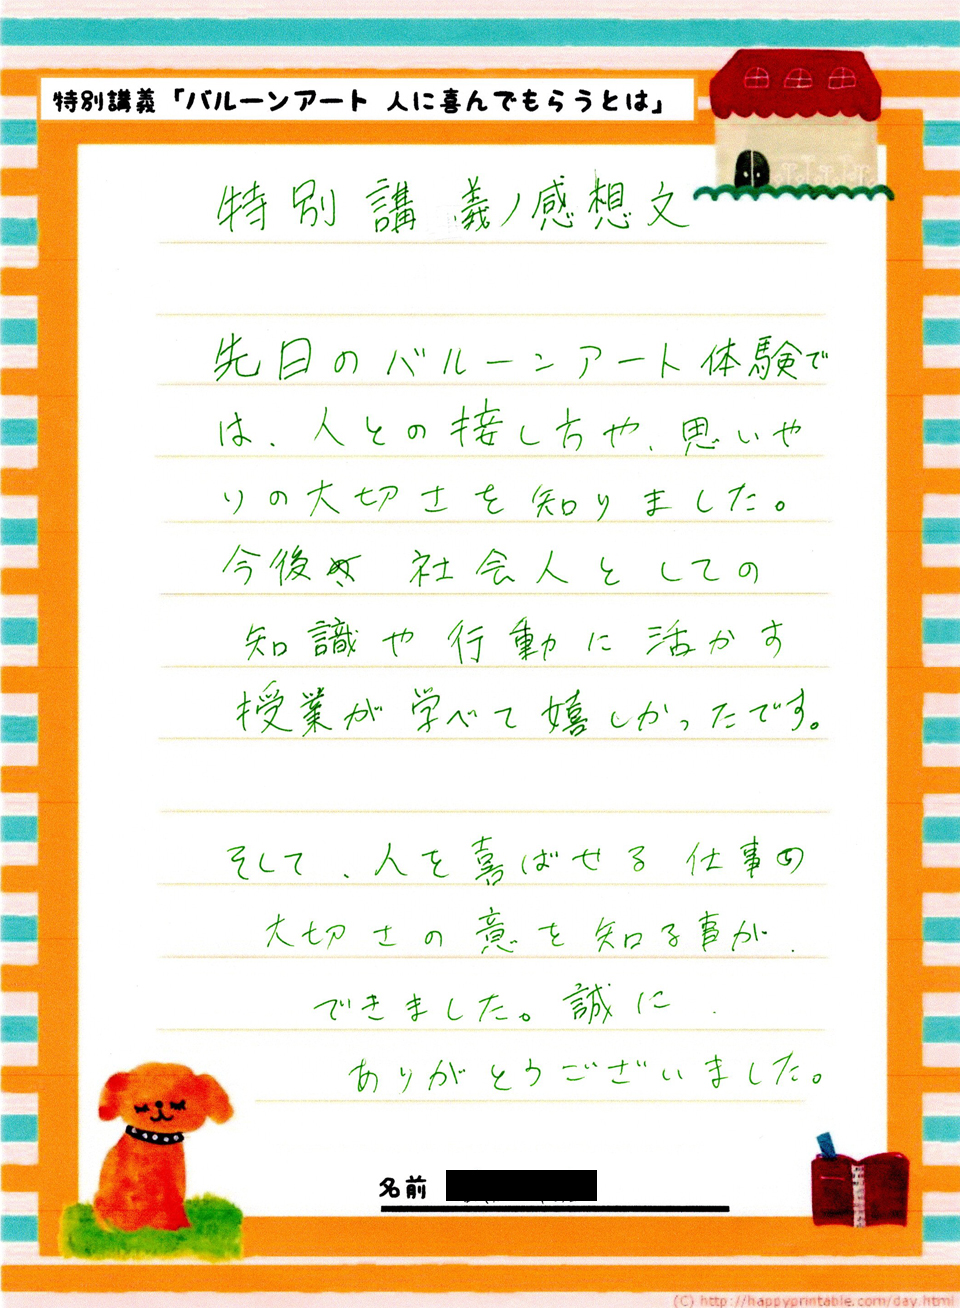 特別講義「バルーンアート 人に喜んでもらうとは」
特別講義ノ感想文
先日のバルーンアート体験で
は、人との接し方や、思いや
りの大切さを知りました。
今後の社会人としての
知識や行動に活かす
授業が学べて嬉しかったです。
そして、人を喜ばせる仕事の
大切さの意を知る事が
できました。誠に
ありがとうございました。
名前
(C) http://happyprintable.com/day.html